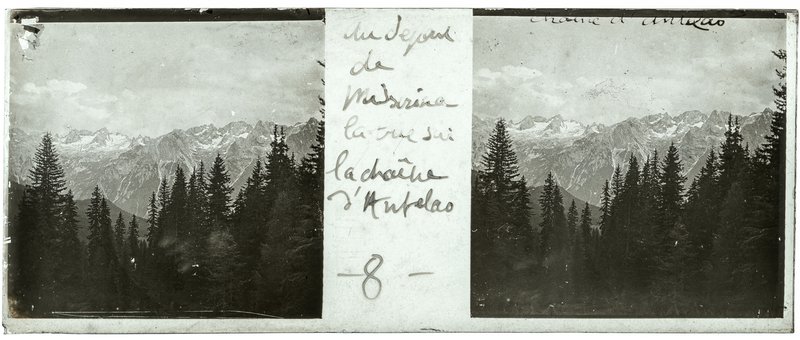 Au départ
de
Misurina
la vue sur
la chaîne
d'Antelao
- 8 -
chaîne d'Antelao